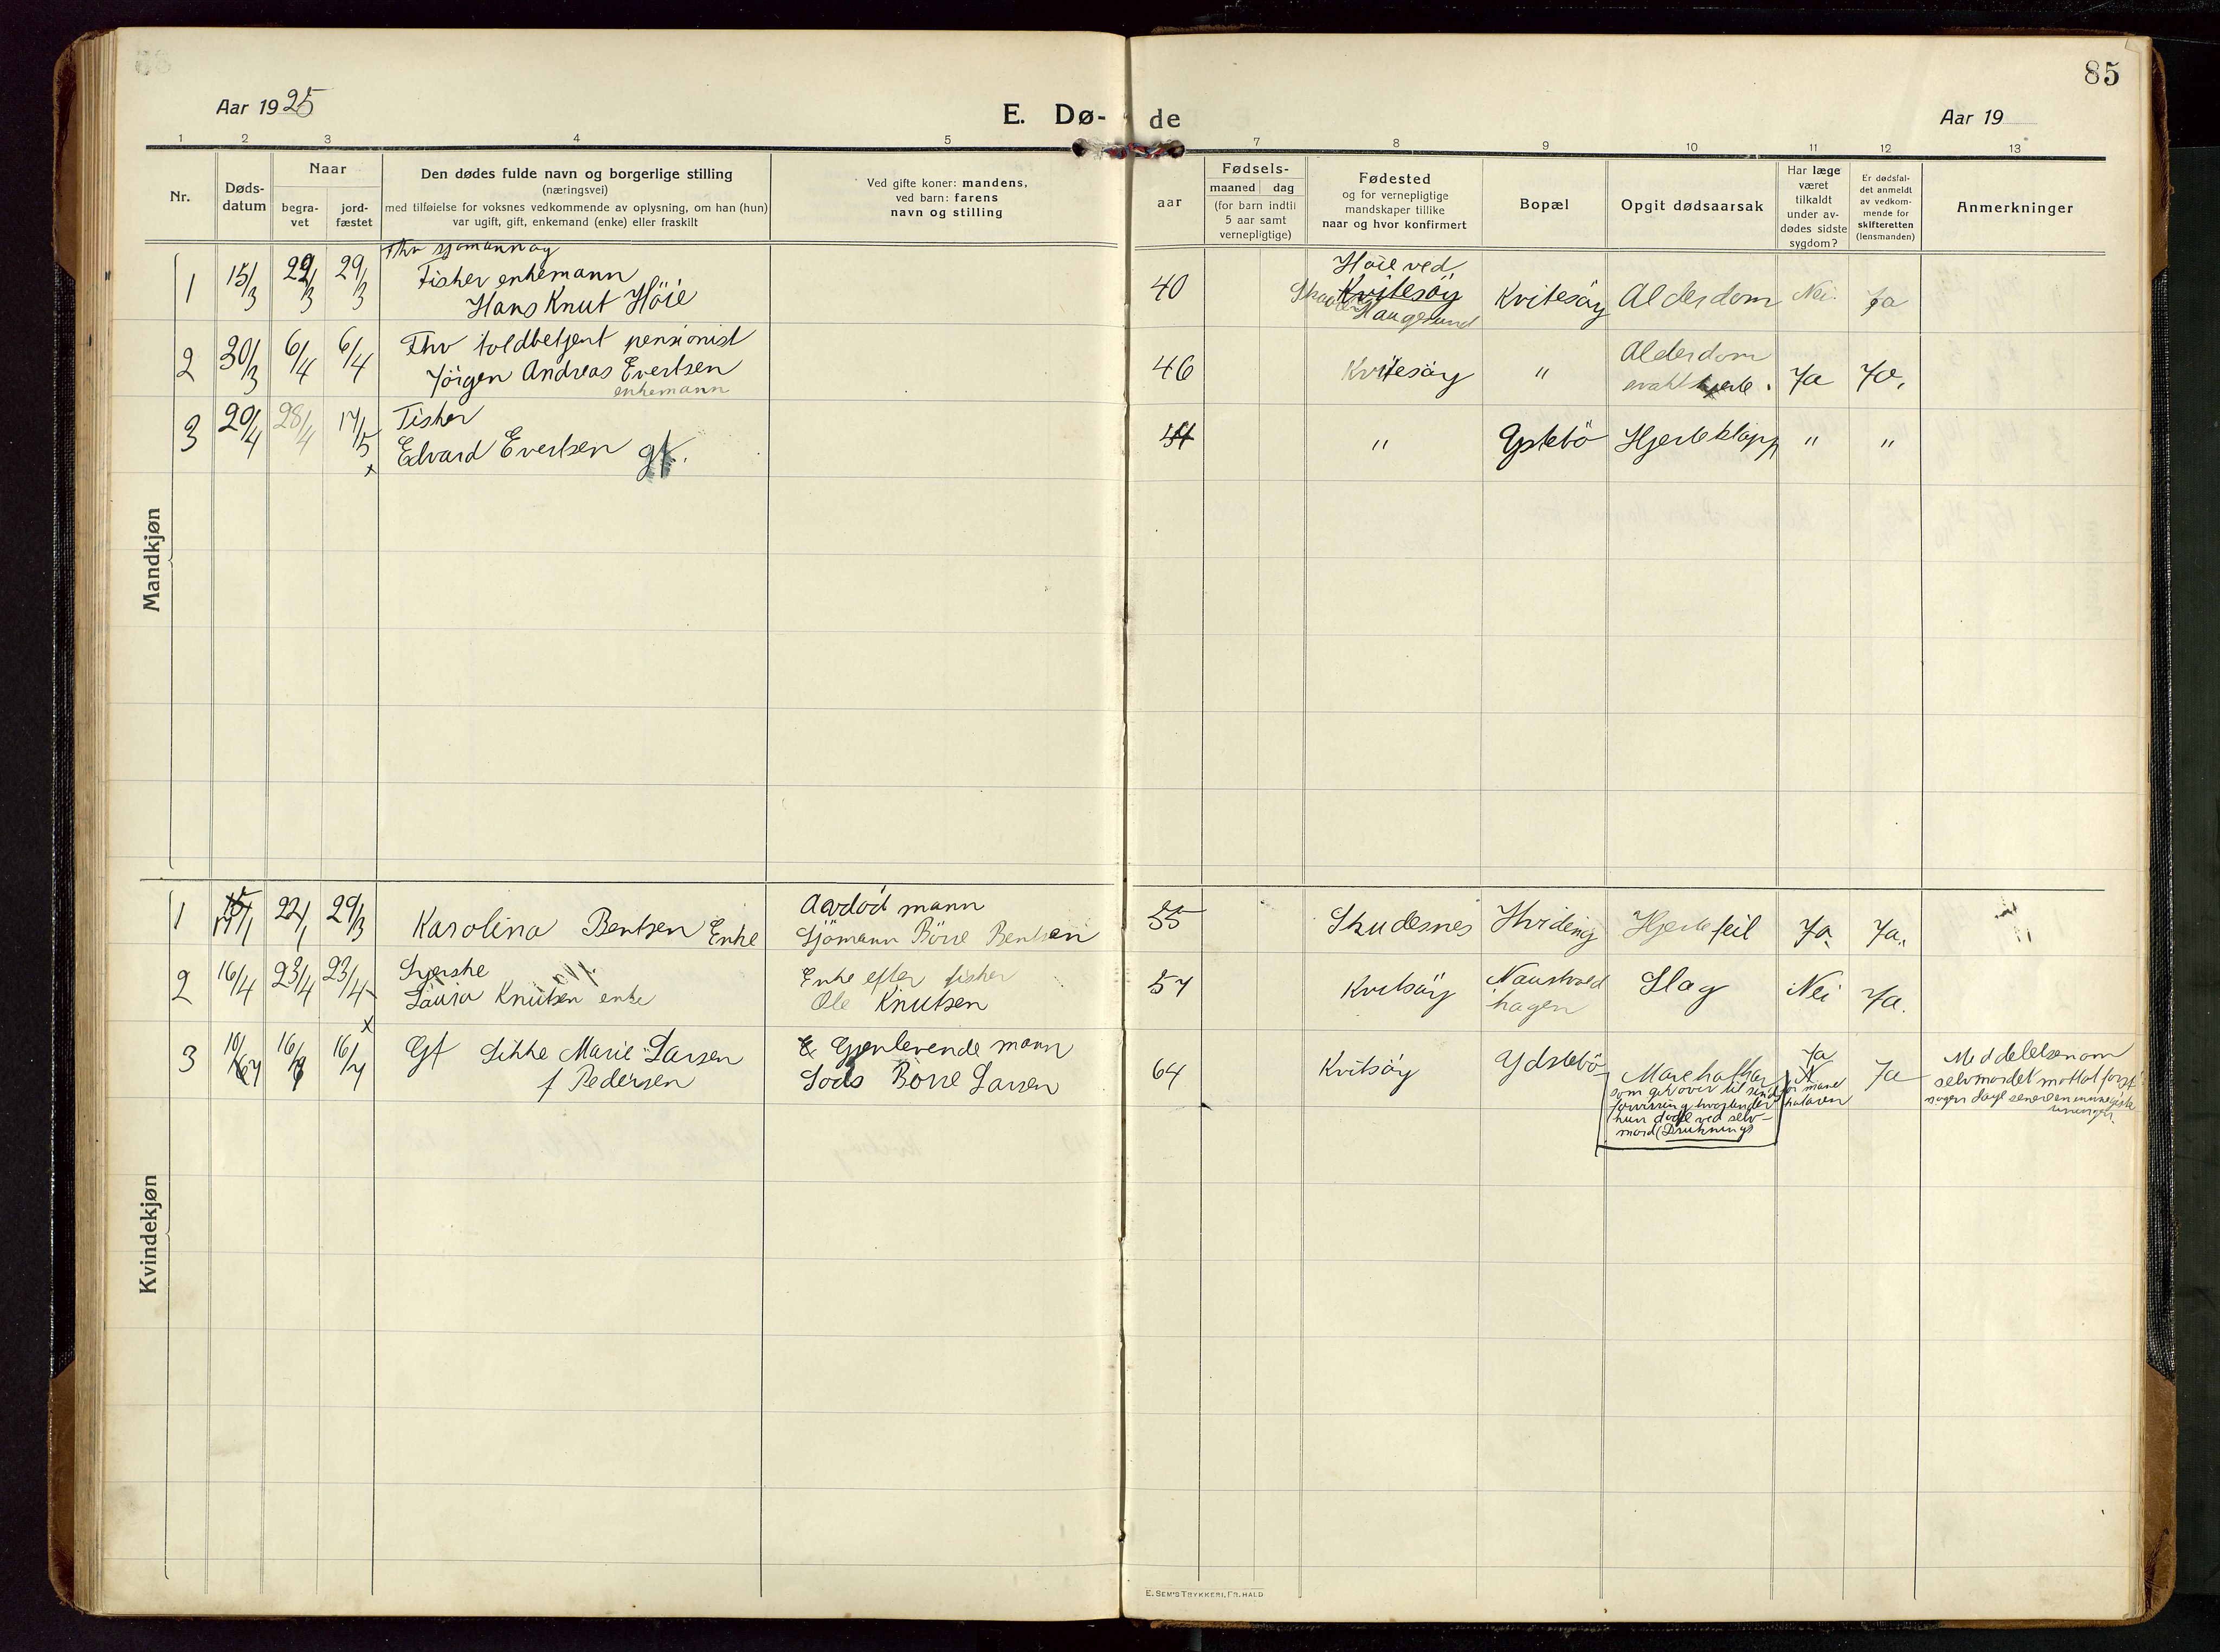 85
Aar 1925
E. Dø-
de
Aar 19
1 2 3 4 5 7 8 9 10 11 12 13
Nr.
Døds-
datum
Naar
begra-
vet
jord-
fæstet
Den dødes fulde navn og borgerlige stilling
(næringsvei)
med tilføielse for voksnes vedkommende av oplysning, om han (hun)
var ugift, gift, enkemand (enke) eller fraskilt
Ved gifte koner: mandens,
ved barn: farens
navn og stilling
aar
Fødsels-
maaned dag
(for barn indtil
5 aar samt
vernepligtige)
Fødested
og for vernepligtige
mandskaper tillike
naar og hvor konfirmert
Bopæl
Opgit dødsaarsak
Har læge
været
tilkaldt
under av-
dødes sidste
sygdom?
Er dødsfal-
det anmeldt
av vedkom-
mende for
skifteretten
(lensmanden)
Anmerkninger
Mandkjøn
1 15/3 29/3 29/3
Fhv sjømann og
Fisker enkemann
Hans Knut Höie
40
Höie ved
Kvitesöy
Haugesund
Kvitesöy Alderdom Nei Ja
2 30/3 6/4 6/4
Fhv toldbetjent pensionist
Jörgen Andreas Evertsen
enkemann
46 Kvitesöy "
Alderdom
svakt hjerte. Ja Ja.
3 20/4 28/4 17/5
Fisker
Edvard Evertsen gf.
" Ystebö Hjerteklapp " "
Kvindekjøn
1 17/1 22/1 29/3
Karolina Bentsen Enke
Avdöd mann
Sjömann Börre Bentsen
55 Skudesnes Hviding Hjertefeil Ja Ja.
2 16/4 23/4 23/4
Laura Knutsen enke
Enke efter fisker
Ole Knutsen
57 Kvitsöy
Naustvold
hagen
Slag Nei Ja.
3 10/7 16/7 16/7
Gf Sikke Marie Larsen
f Pedersen
Gjenlevende mann
Börre Larsen
64 Kvitsöy Ydstebö
Mavekatharr
som gik over til sinds
forvirring hvorunder
hun döde ved selv-
mord (Drukning)
Ja
for mave
katarren
Ja
Meddelelsen om
selvmordet mottat först
nogen dage senere